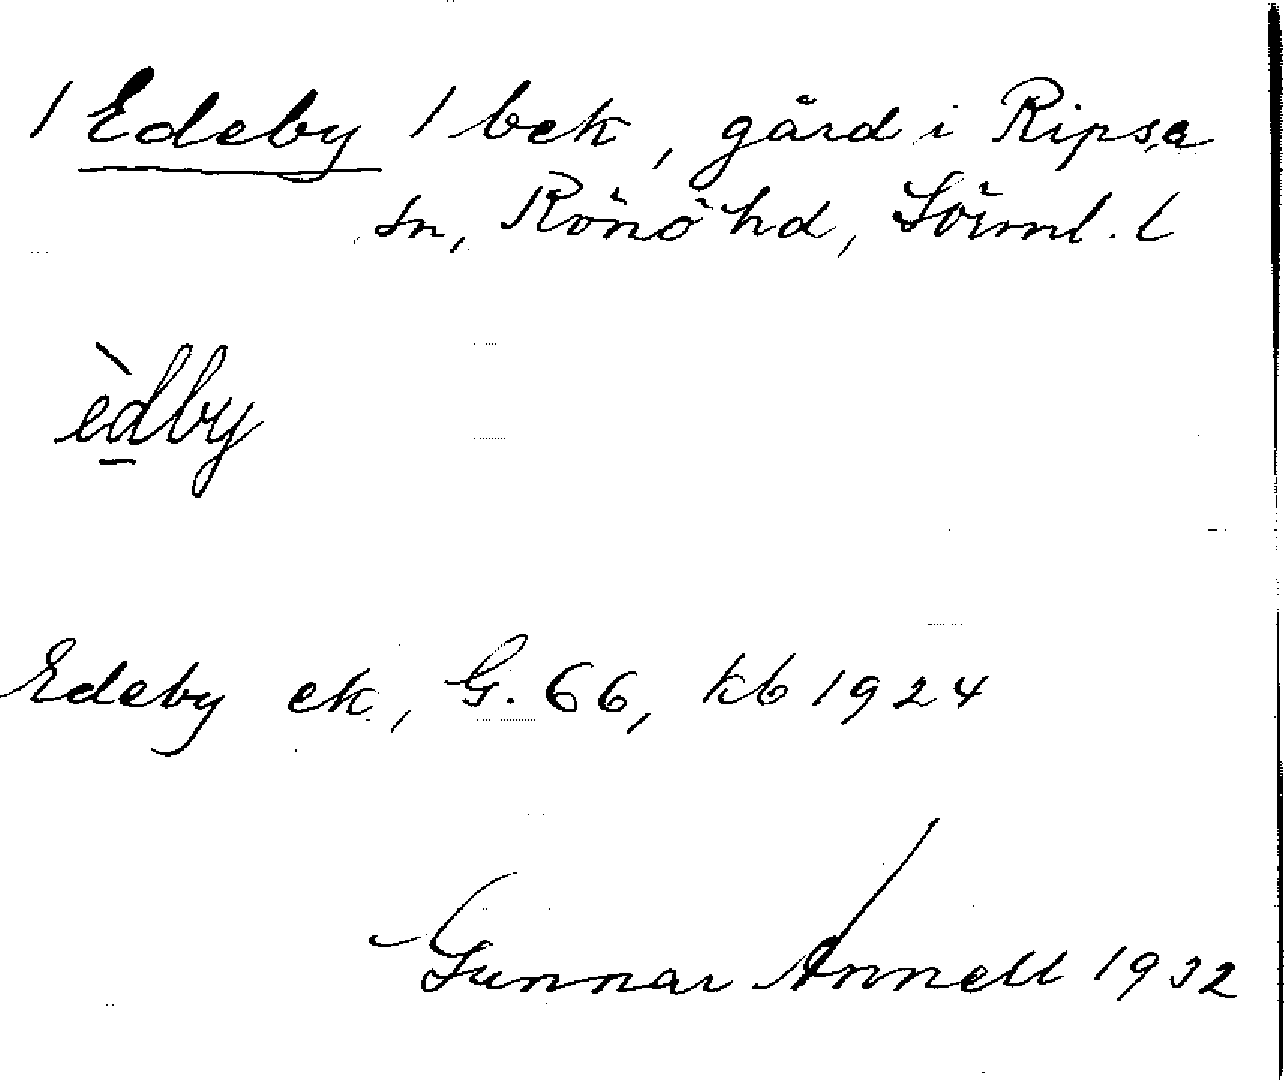 / Edeby / bek, gård i Ripsa
sn, Rönö hd, Sörml. l
èdby
Edeby ek, G. 66, kb 1924
Gunnar Annell 1932